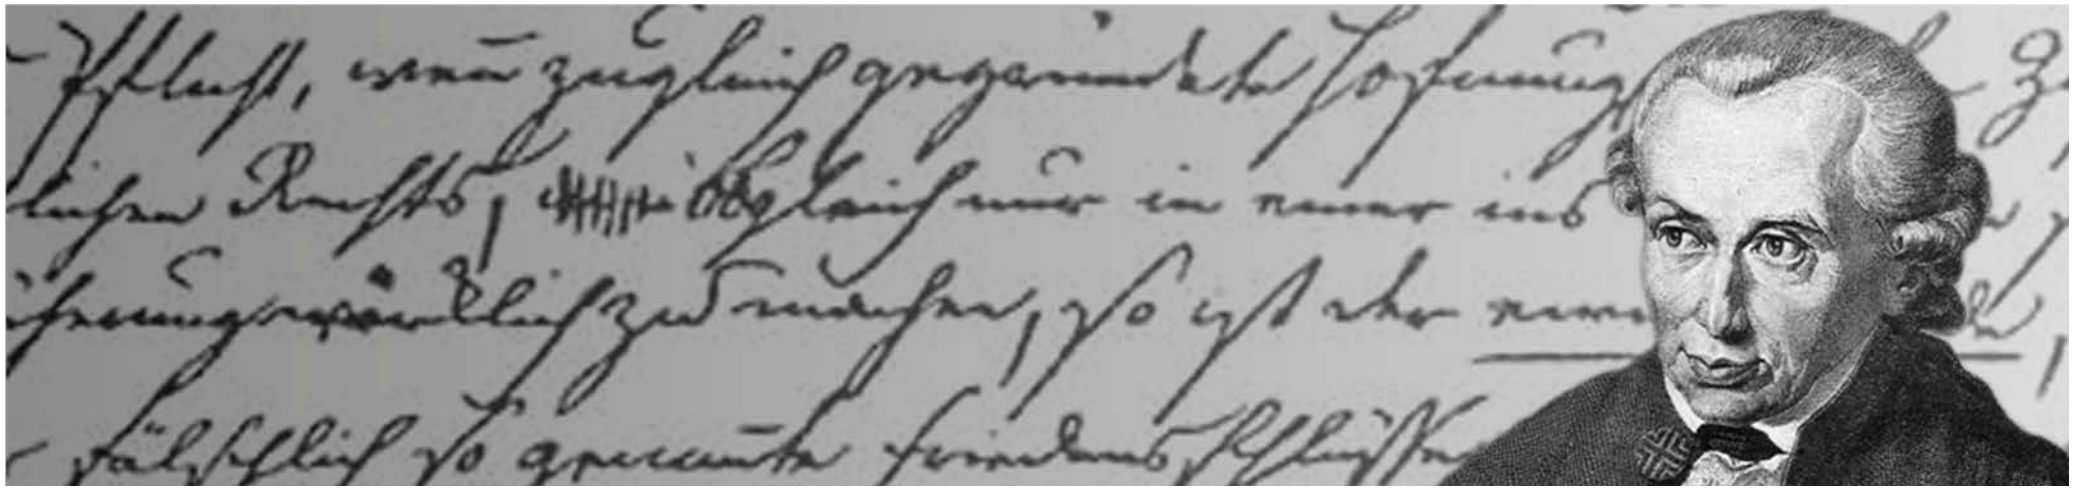 Pflicht, wen̄ zugleich gegründete Hofnung
lichen Rechts, obgleich nur in einer ins
äherung wirklich zu machen, so ist der ewi
fälschlich so genan̄te Friedensschlüsse